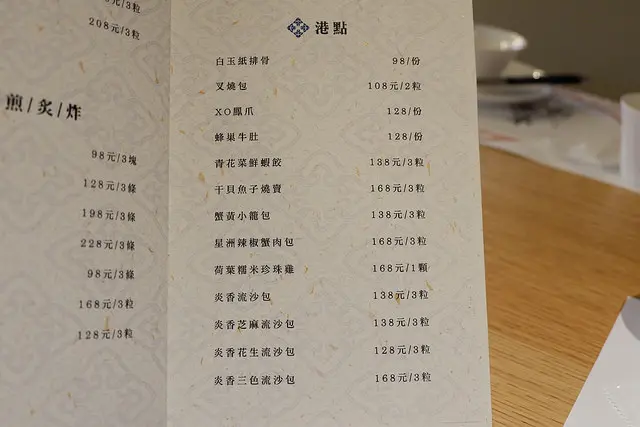 208元/3粒
煎/炙/炸
98元/3塊
128元/3條
198元/3條
228元/3條
98元/3條
168元/3粒
128元/3粒
港點
白玉紙排骨 98/份
叉燒包 108元/2粒
XO鳳爪 128/份
蜂巢牛肚 128/份
青花菜鮮蝦餃 138元/3粒
干貝魚子燒賣 168元/3粒
蟹黃小籠包 138元/3粒
星洲辣椒蟹肉包 168元/3粒
荷葉糯米珍珠雞 168元/1顆
炎香流沙包 138元/3粒
炎香芝麻流沙包 138元/3粒
炎香花生流沙包 128元/3粒
炎香三色流沙包 168元/3粒